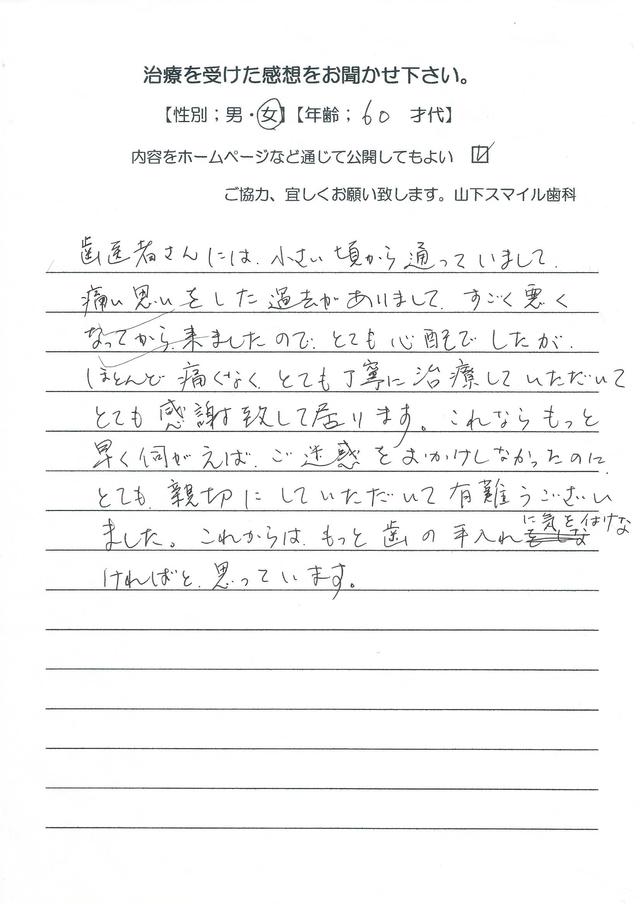 治療を受けた感想をお聞かせ下さい。
【性別；男・女】【年齢；60 才代】
内容をホームページなど通じて公開してもよい ☑
ご協力、宜しくお願い致します。山下スマイル歯科
歯医者さんには、小さい頃から通っていまして、
痛い思いをした過去がありまして、すごく悪く
なってから、来ましたので、とても心配でしたが、
ほとんど痛くなく、とても丁寧に治療していただいて
とても感謝致して居ります。これならもっと
早く伺がえば、ご迷惑をおかけしなかったのに、
とても、親切にしていただいて有難うござい
ました。これからは、もっと歯の手入れに気を付けな
ければと、思っています。